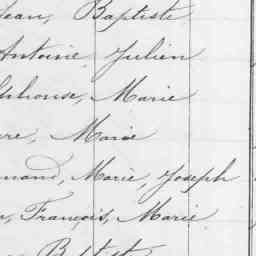 Jean, Baptiste
Antoine, Julien
lphonse, Marie
re, Marie
mand, Marie, Joseph
, François, Marie
Baptiste